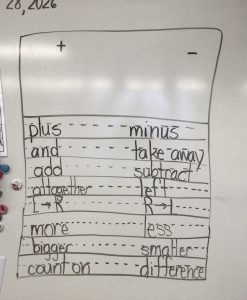 28, 2026
+ −
plus minus
and take-away
add subtract
altogether left
L→R R→L
more less
bigger smaller
count on difference